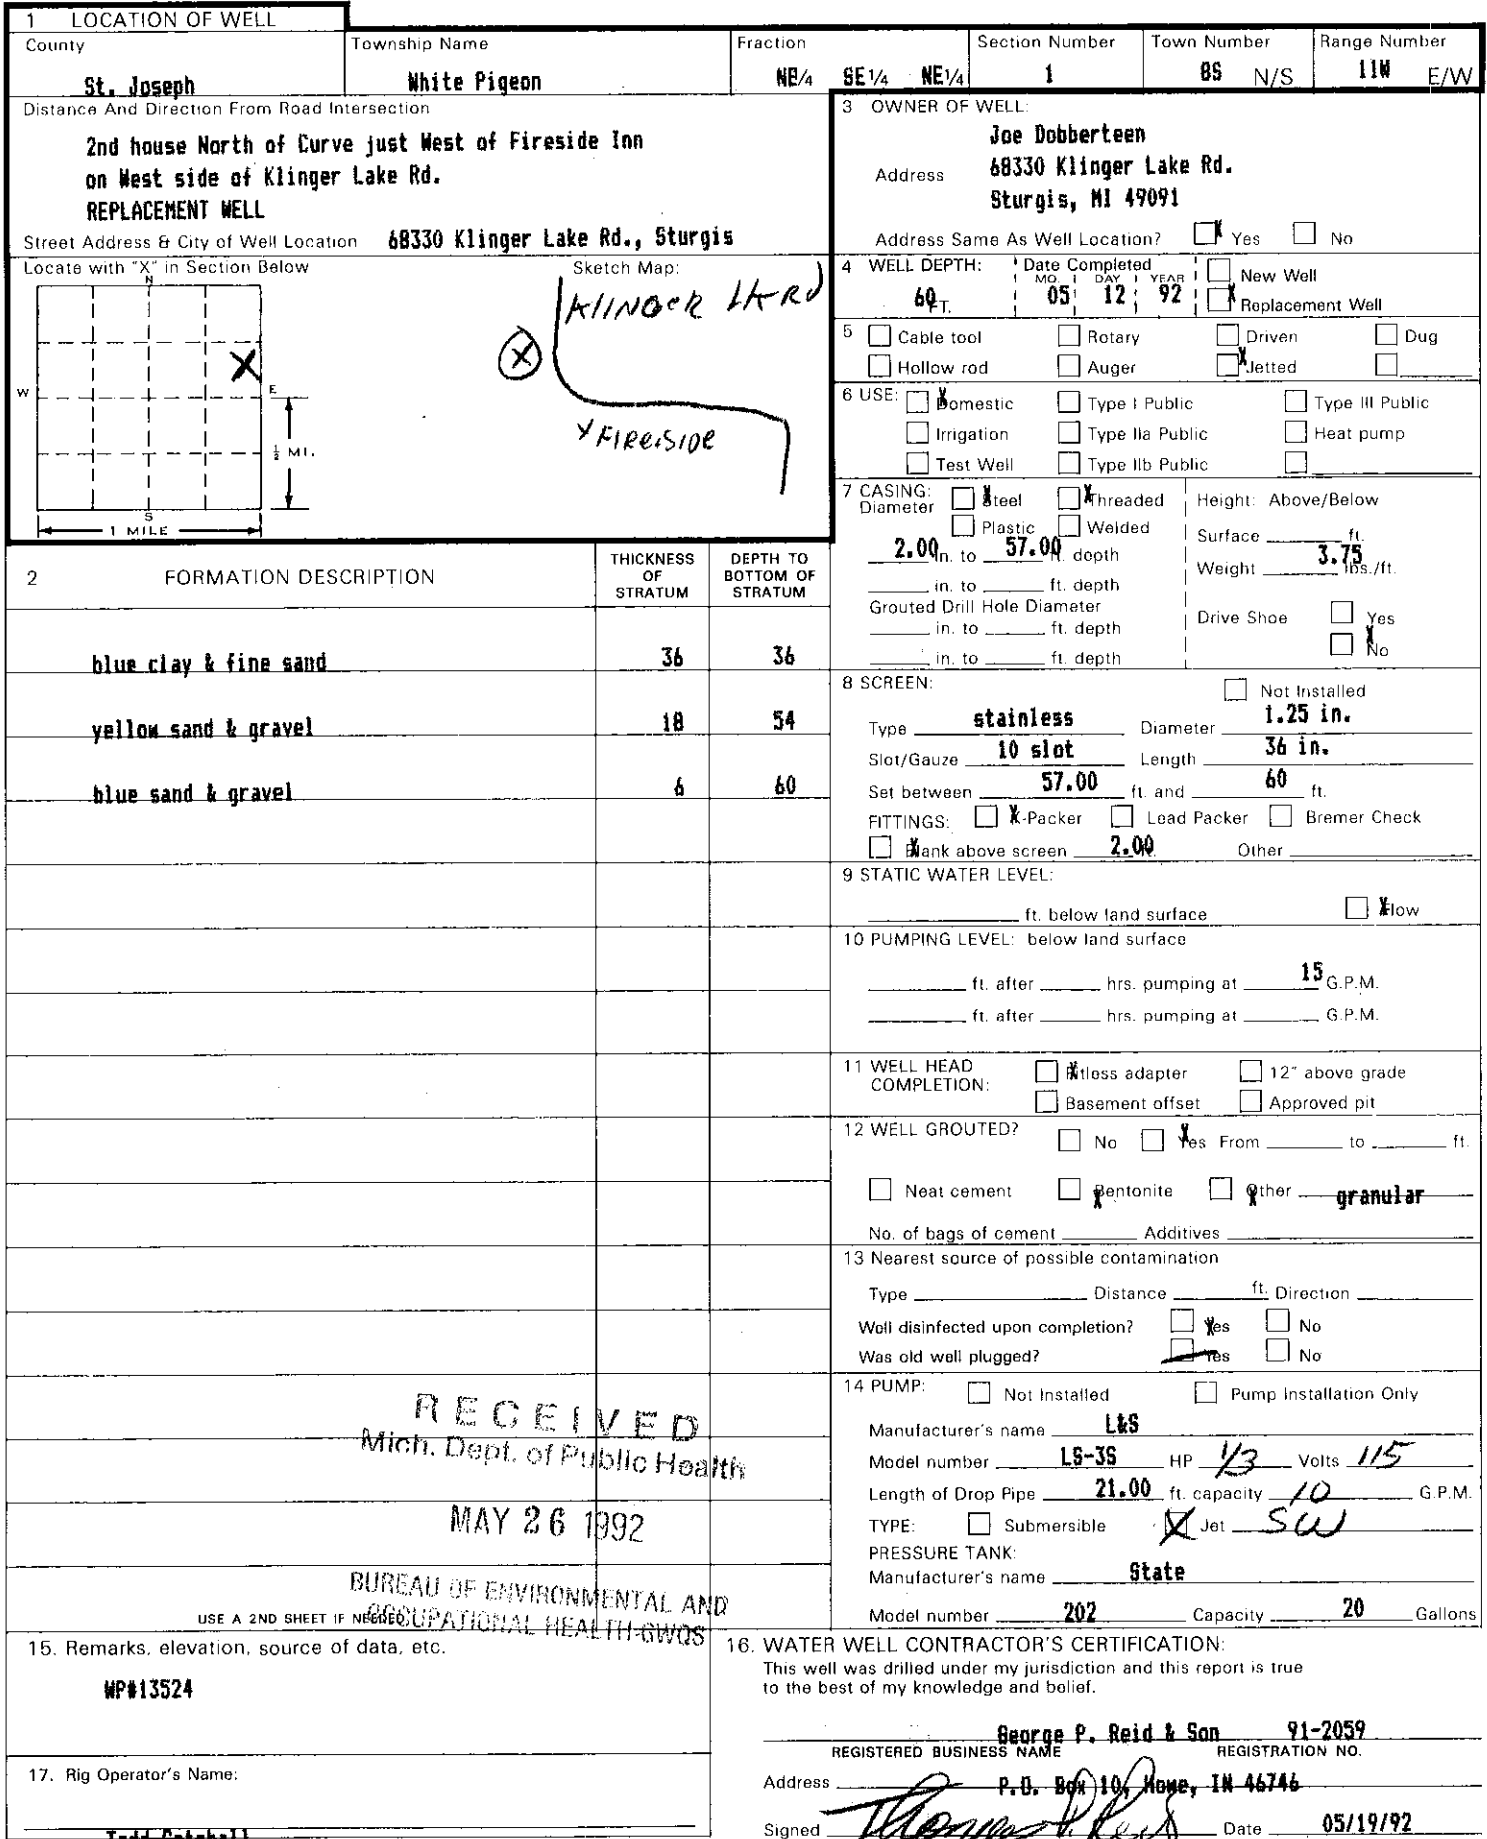 1 LOCATION OF WELL
County Township Name Fraction Section Number Town Number Range Number
St. Joseph White Pigeon NE/4 SE1/4 NE1/4 1 8S N/S 11W E/W
Distance And Direction From Road Intersection
2nd house North of Curve just West of Fireside Inn
on West side of Klinger Lake Rd.
REPLACEMENT WELL
Street Address & City of Well Location 68330 Klinger Lake Rd., Sturgis
Locate with "X" in Section Below
N
X
W
E
½ MI.
S
1 MILE
Sketch Map:
KlINGER LK RD
X
X FIReSIDE
3 OWNER OF WELL:
Joe Dobberteen
Address 68330 Klinger Lake Rd.
Sturgis, MI 49091
Address Same As Well Location? X Yes No
4 WELL DEPTH: Date Completed
MO. DAY YEAR
60 FT. 05 12 92
New Well
X Replacement Well
5 Cable tool Rotary Driven Dug
Hollow rod Auger X Jetted
6 USE: X Domestic Type I Public Type III Public
Irrigation Type IIa Public Heat pump
Test Well Type IIb Public
7 CASING: X Steel X Threaded Height: Above/Below
Diameter
Plastic Welded
Surface ft.
2.00 in. to 57.00 ft. depth
Weight 3.75 lbs./ft.
in. to ft. depth
Grouted Drill Hole Diameter
in. to ft. depth
in. to ft. depth
Drive Shoe Yes
X No
2 FORMATION DESCRIPTION THICKNESS OF STRATUM DEPTH TO BOTTOM OF STRATUM
blue clay & fine sand 36 36
yellow sand & gravel 18 54
blue sand & gravel 6 60
8 SCREEN: Not Installed
Type stainless Diameter 1.25 in.
Slot/Gauze 10 slot Length 36 in.
Set between 57.00 ft. and 60 ft.
FITTINGS: X K-Packer Lead Packer Bremer Check
X Blank above screen 2.00 Other
9 STATIC WATER LEVEL:
ft. below land surface X Flow
10 PUMPING LEVEL: below land surface
ft. after hrs. pumping at 15 G.P.M.
ft. after hrs. pumping at G.P.M.
11 WELL HEAD COMPLETION: X Pitless adapter 12" above grade
Basement offset Approved pit
12 WELL GROUTED? No X Yes From to ft.
Neat cement X Bentonite X Other granular
No. of bags of cement Additives
13 Nearest source of possible contamination
Type Distance ft. Direction
Well disinfected upon completion? X Yes No
Was old well plugged? Yes No
14 PUMP: Not Installed Pump Installation Only
Manufacturer's name L&S
Model number LS-3S HP 1/3 Volts 115
Length of Drop Pipe 21.00 ft. capacity 10 G.P.M.
TYPE: Submersible X Jet SW
PRESSURE TANK:
Manufacturer's name State
Model number 202 Capacity 20 Gallons
RECEIVED
Mich. Dept. of Public Health
MAY 26 1992
BUREAU OF ENVIRONMENTAL AND
OCCUPATIONAL HEALTH-GWQS
USE A 2ND SHEET IF NEEDED
15. Remarks, elevation, source of data, etc.
WP#13524
17. Rig Operator's Name:
Todd
16. WATER WELL CONTRACTOR'S CERTIFICATION:
This well was drilled under my jurisdiction and this report is true
to the best of my knowledge and belief.
George P. Reid & Son 91-2059
REGISTERED BUSINESS NAME REGISTRATION NO.
Address P.O. Box 10, Howe, IN 46746
Signed Thomas P. Reid Date 05/19/92